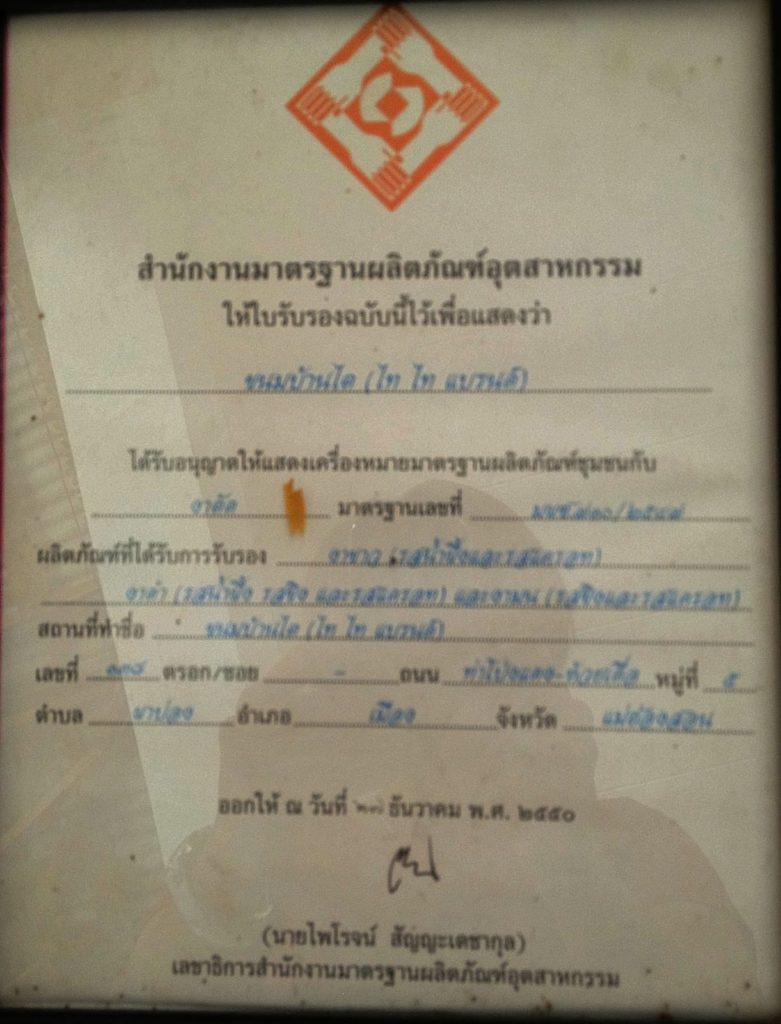 สำนักงานมาตรฐานผลิตภัณฑ์อุตสาหกรรม
ให้ใบรับรองฉบับนี้ไว้เพื่อแสดงว่า
ขนมบ้านไต (ไท ไท แบรนด์)
ได้รับอนุญาตให้แสดงเครื่องหมายมาตรฐานผลิตภัณฑ์ชุมชนกับ
งาตัด มาตรฐานเลขที่ มผช.๗๓๐/๒๕๔๗
ผลิตภัณฑ์ที่ได้รับการรับรอง งาขาว (รสน้ำผึ้งและรสแครอท)
งาดำ (รสน้ำผึ้ง รสขิง และรสแครอท) และงามน (รสขิงและรสแครอท)
สถานที่ทำชื่อ ขนมบ้านไต (ไท ไท แบรนด์)
เลขที่ ๑๓๘ ตรอก/ซอย - ถนน ท่าโป่งแดง-ห้วยเดื่อ หมู่ที่ ๕
ตำบล ผาบ่อง อำเภอ เมือง จังหวัด แม่ฮ่องสอน
ออกให้ ณ วันที่ ๒๗ ธันวาคม พ.ศ. ๒๕๕๐
(นายไพโรจน์ สัญญะเดชากุล)
เลขาธิการสำนักงานมาตรฐานผลิตภัณฑ์อุตสาหกรรม